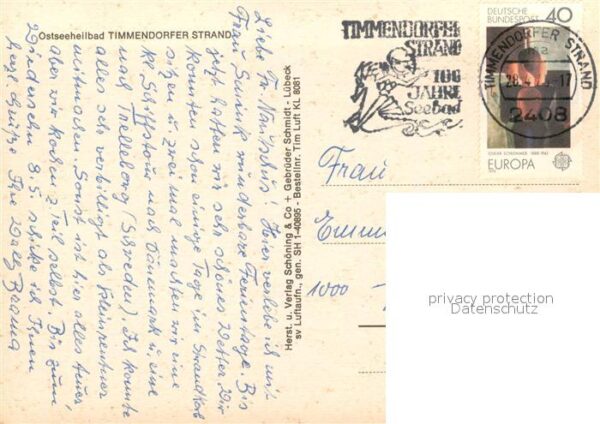 Ostseeheilbad TIMMENDORFER STRAND
Liebe Fr. Hier verlebe ich mit
Frau wunderbare Ferientage. Bis
jetzt hatten wir sehr schönes Wetter. Wir
konnten schon einige Tage im Strandkorb
sitzen u. zwei mal machten wir eine
kl. Schiffstour nach Dänmark u. eine
nach Trelleborg (Schweden) Ich konnte
alles sehr verbilligt als Kleinrentner
mitmachen. Sonst ist hier alles teuer,
aber wir kochen z. Teil selbst. Bis zum
Wiedersehn 8.5 schicke ich Ihnen
herzl. Grüße Ihre
Herst. u. Verlag Schöning & Co + Gebrüder Schmidt - Lübeck
sv Luftaufn., gen. SH 1-40895 - Bestellnr. Tim Luft KL 8081
TIMMENDORFER
STRAND
100
JAHRE
Seebad
TIMMENDORFER STRAND
2408
DEUTSCHE
BUNDESPOST
40
OSKAR SCHLEMMER 1888-1943
EUROPA
CEPT
Frau
1000
privacy protection
Datenschutz